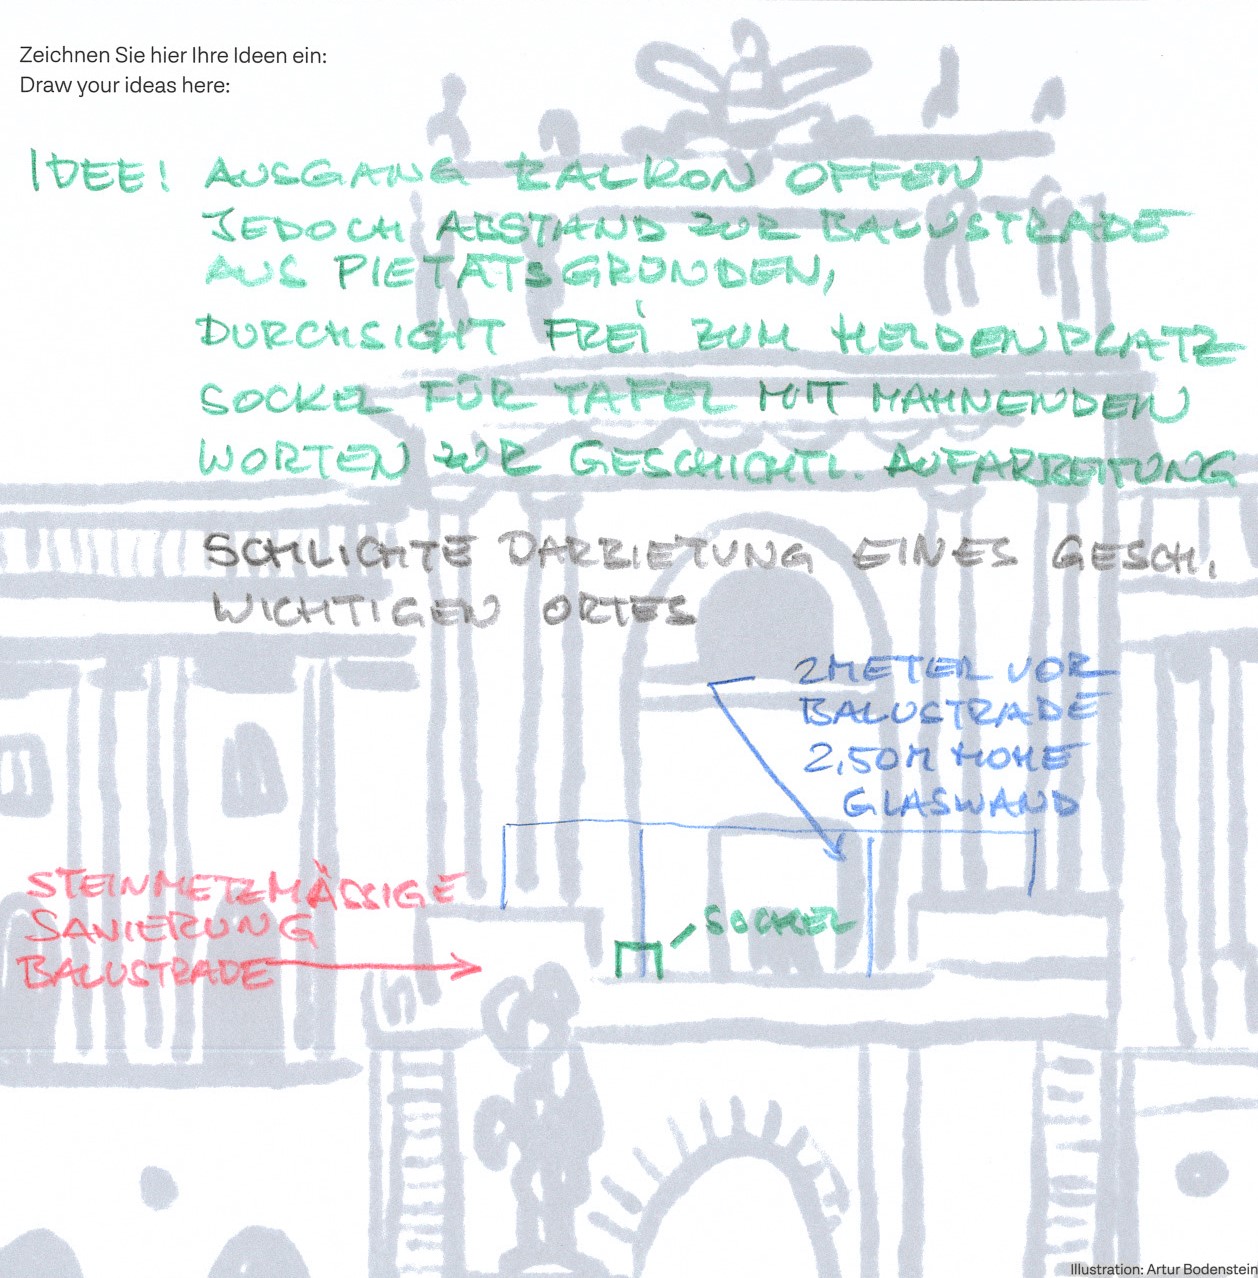 Zeichnen Sie hier Ihre Ideen ein:
Draw your ideas here:
IDEE! AUSGANG BALKON OFFEN
JEDOCH ABSTAND ZUR BALUSTRADE
AUS PIETÄTSGRÜNDEN,
DURCHSICHT FREI ZUM HELDENPLATZ
SOCKEL FÜR TAFEL MIT MAHNENDEN
WORTEN ZUR GESCHICHTL. AUFARBEITUNG
SCHLICHTE DARBIETUNG EINES GESCH.
WICHTIGEN ORTES
2 METER VOR
BALUSTRADE
2,50M HOHE
GLASWAND
STEINMETZMÄSSIGE
SANIERUNG
BALUSTRADE
SOCKEL
Illustration: Artur Bodenstein